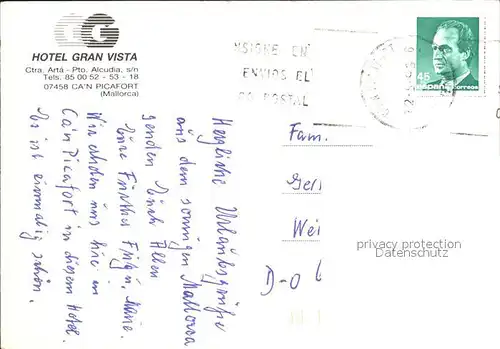 HOTEL GRAN VISTA
Ctra. Artá - Pto. Alcudia, s/n
Tels. 85 00 52 - 53 - 18
07458 CA'N PICAFORT
(Mallorca)
NSIGNE EN
ENVIOS EL
GO POSTAL
45
España correos
Herzliche Urlaubsgrüße
aus dem sonnigen Mallorca
senden Euch Allen
Eure
Wir erholen uns hier in
Ca'n Picafort in diesem Hotel.
Es ist einmalig schön.
Fam.
Wei
D-0
privacy protection
Datenschutz